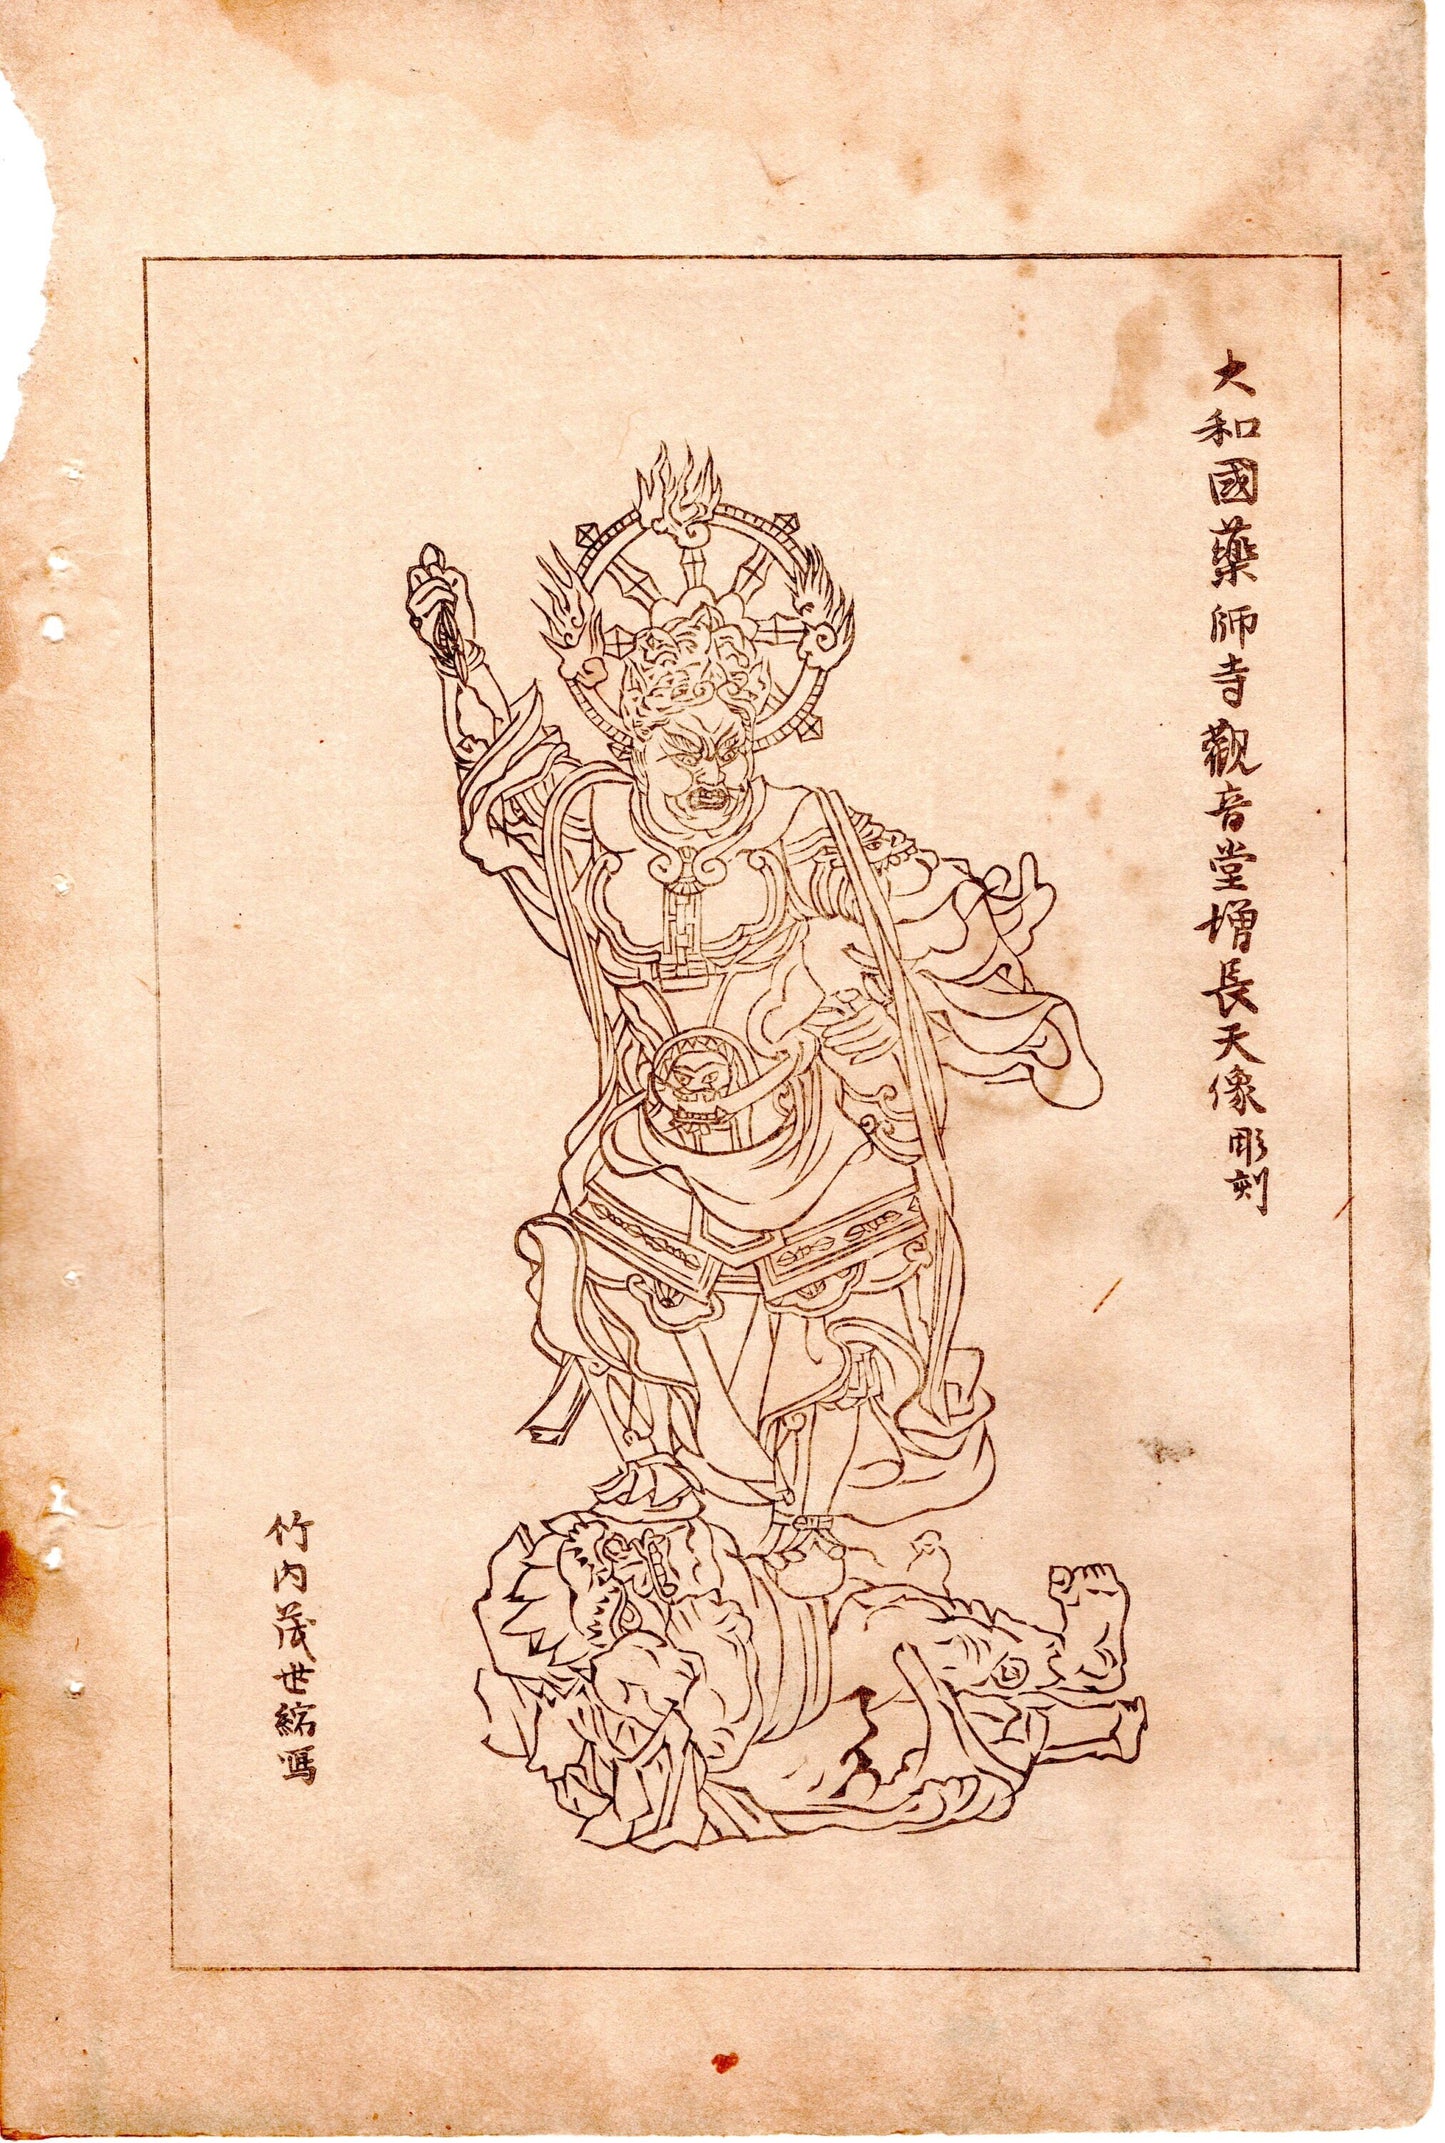 大和國藥師寺觀音堂增長天像彫刻
竹内茂世縮冩